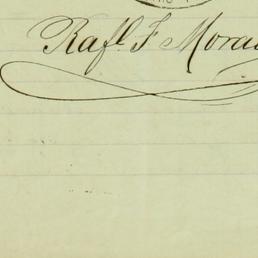 Rafl. F Mora